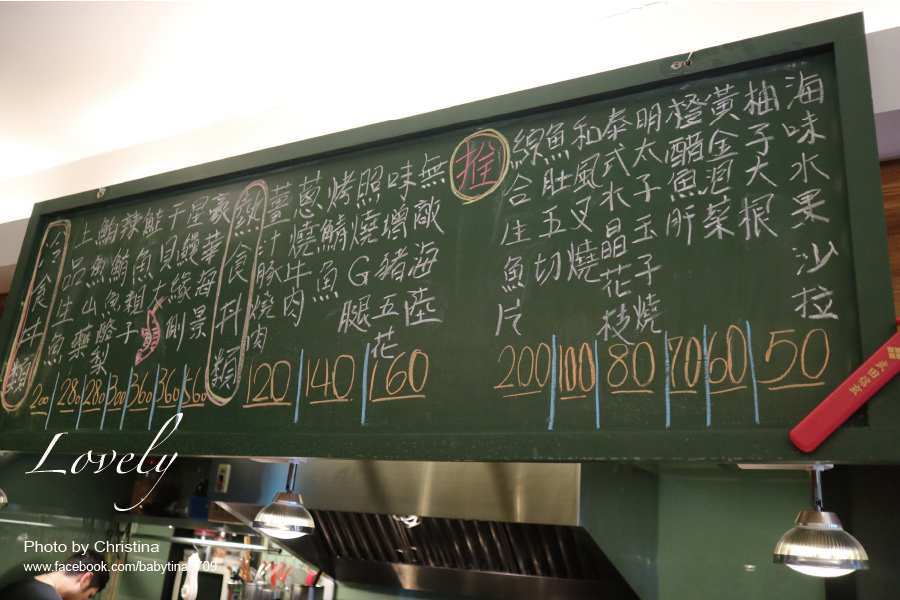 海味水果沙拉
50
柚子大根
黃金泡菜
60
橙醋魚肝
70
明太子玉子燒
泰式水晶花枝
80
和風叉燒
魚肚五切
100
綜合生魚片
200
推
無敵海陸
味增豬五花
160
照燒G腿
烤鯖魚
140
蔥燒牛肉
薑汁豚燒肉
120
熟食丼類
豪華海景
560
星鰻緣側
360
干貝大
360
鮭魚粗子
300
辣鮪魚酪梨
280
鮪魚山藥
280
上品生魚
200
冷食丼類
Lovely
Photo by Christina